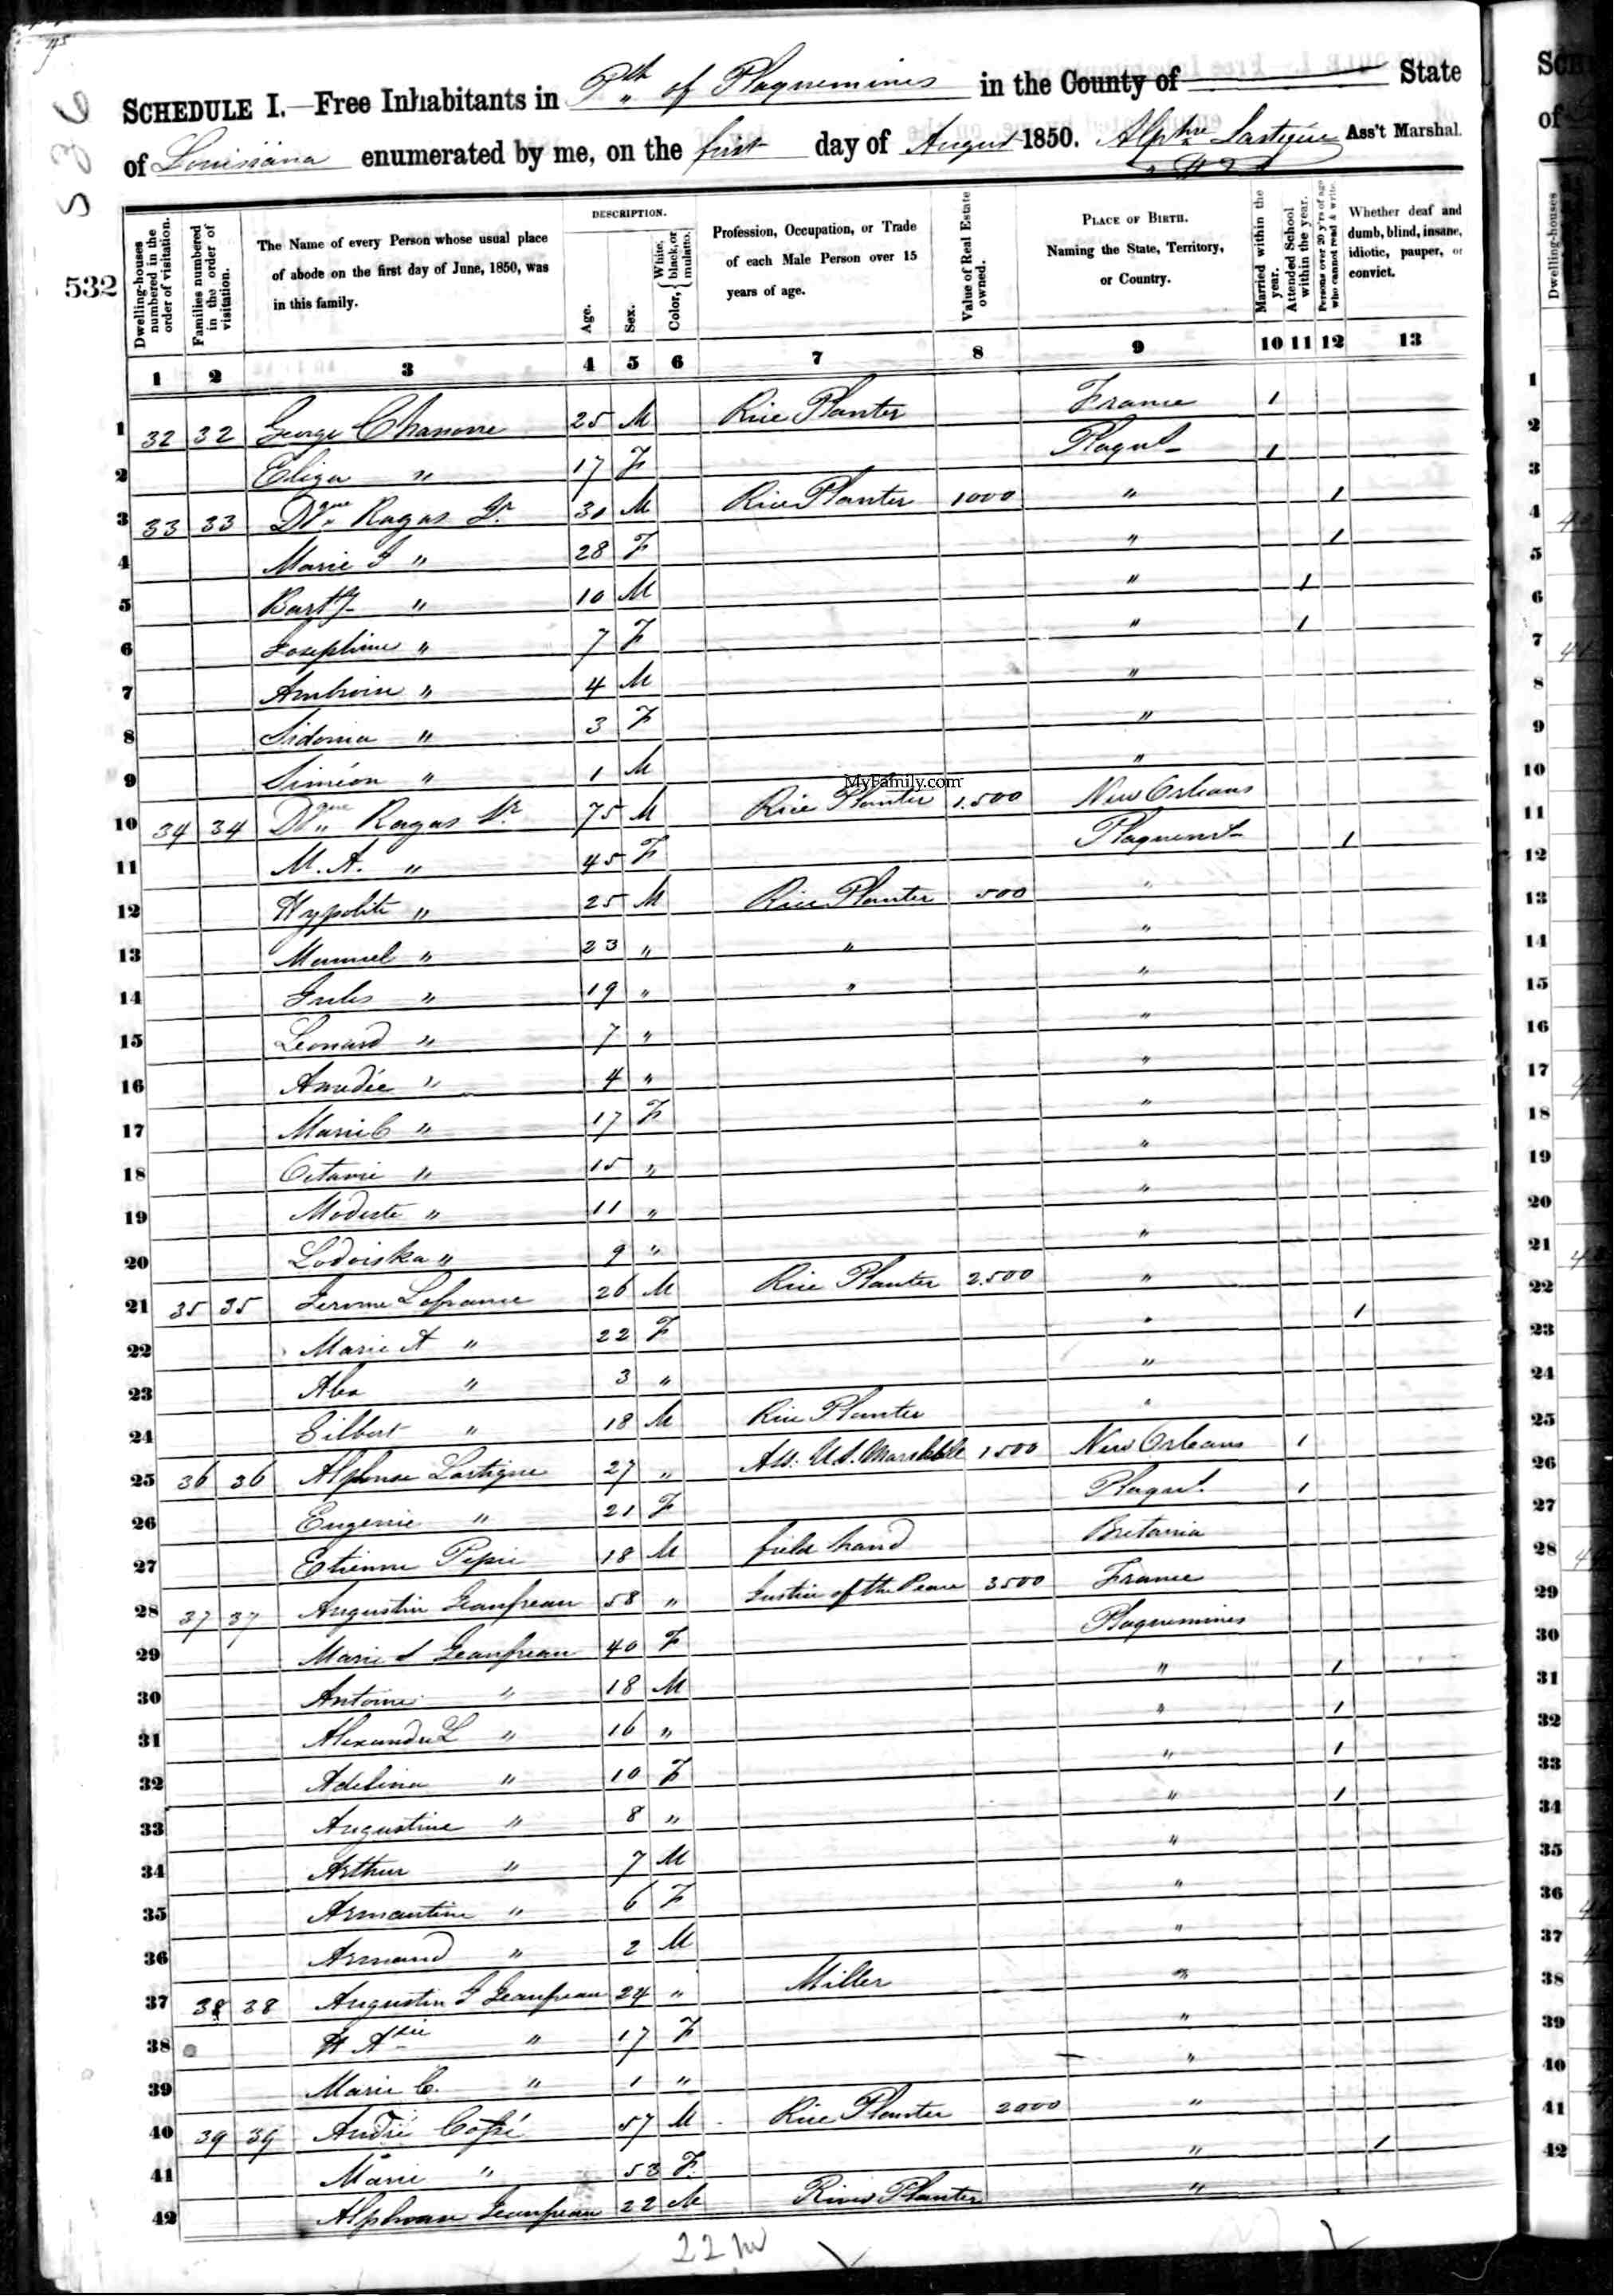 SCHEDULE I.—Free Inhabitants in Psh of Plaquemines in the County of State
of Louisiana enumerated by me, on the first day of August 1850. Alphse Lartigue Ass't Marshal.
536
532
Dwelling-houses numbered in the order of visitation.
Families numbered in the order of visitation.
The Name of every Person whose usual place of abode on the first day of June, 1850, was in this family.
DESCRIPTION.
Age.
Sex.
Color, { White, black, or mulatto.
Profession, Occupation, or Trade of each Male Person over 15 years of age.
Value of Real Estate owned.
PLACE OF BIRTH. Naming the State, Territory, or Country.
Married within the year.
Attended School within the year.
Persons over 20 y'rs of age who cannot read & write.
Whether deaf and dumb, blind, insane, idiotic, pauper, or convict.
1 2 3 4 5 6 7 8 9 10 11 12 13
1 32 32 George 25 M Rice Planter France 1
2 Eliza " 17 F Plaqul 1
3 33 33 Dque Ragas Jr 30 M Rice Planter 1000 " 1
4 Marie J " 28 F " 1
5 Barthy " 10 M " 1
6 Josephine " 7 F " 1
7 Ambroise " 4 M "
8 Sidonia " 3 F "
9 Siméon " 1 M "
MyFamily.com
10 34 34 Dque Ragas Sr 75 M Rice Planter 1.500 New Orleans
11 M. A. " 45 F 1
12 Hypolite " 25 M Rice Planter 500 "
13 Manuel " 23 " " "
14 Jules " 19 " " "
15 Leonard " 7 " "
16 Amedée " 4 " "
17 Marie C " 17 F "
18 Octavie " 15 " "
19 Modeste " 11 " "
20 Lodoiska " 9 " "
21 35 35 Jerome Lafrance 26 M Rice Planter 2.500 "
22 Marie A " 22 F " 1
23 Alex " 3 " "
24 Gilbert " 18 M Rice Planter "
25 36 36 Alphonse Lartigue 27 " Ass. U.S. 1500 New Orleans 1
26 Eugenie " 21 F Plaqul. 1
27 Etienne 18 M field hand Britania
28 37 37 Augustin Jeanfreau 58 " Justice of the Peace 3500 France
29 Marie Jeanfreau 40 F Plaquemines
30 Antoine " 18 M " 1
31 Alexandre L " 16 " " 1
32 Adelina " 10 F " 1
33 Augustine " 8 " " 1
34 Arthur " 7 M "
35 Armantine " 6 F "
36 Armand " 2 M "
37 38 38 Augustin J Jeanfreau 24 " Miller "
38 " 17 F "
39 Marie C. " 1 " "
40 39 39 André 57 M Rice Planter 2000 "
41 Marie " 53 F. " 1
42 Jeanfreau 22 M Planter "